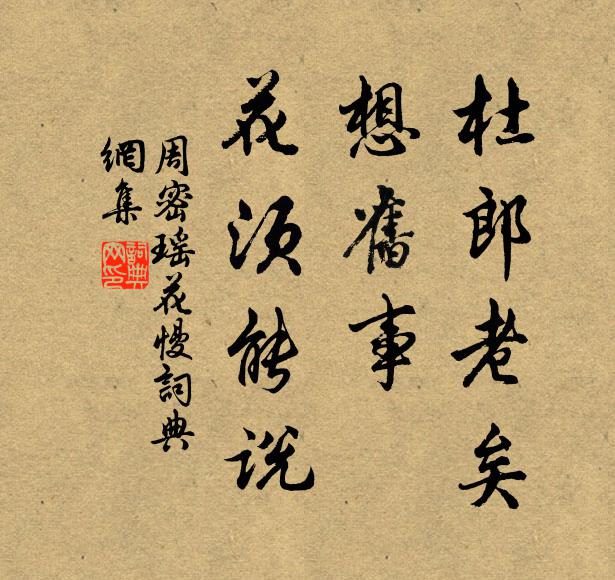 杜郎老矣
想舊事
花須能說
周密瑶花慢詞典
網集
詞典
网印